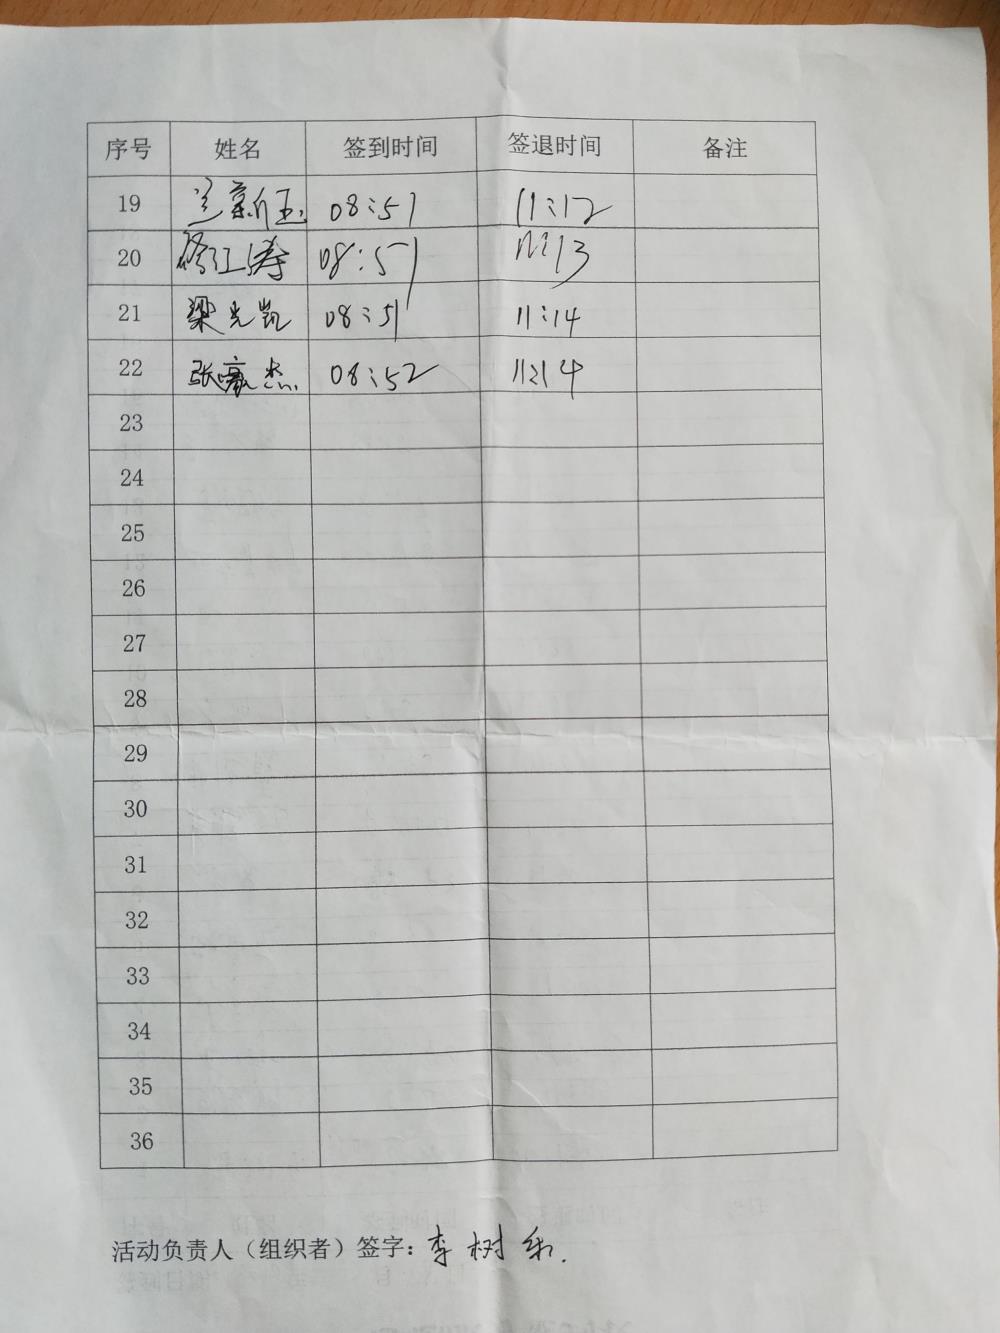 序号 姓名 签到时间 签退时间 备注
19 兰新玉 08:51 11:12
20 修江涛 08:51 11:13
21 梁光凯 08:51 11:14
22 张豪杰 08:52 11:14
23
24
25
26
27
28
29
30
31
32
33
34
35
36
活动负责人（组织者）签字：李树